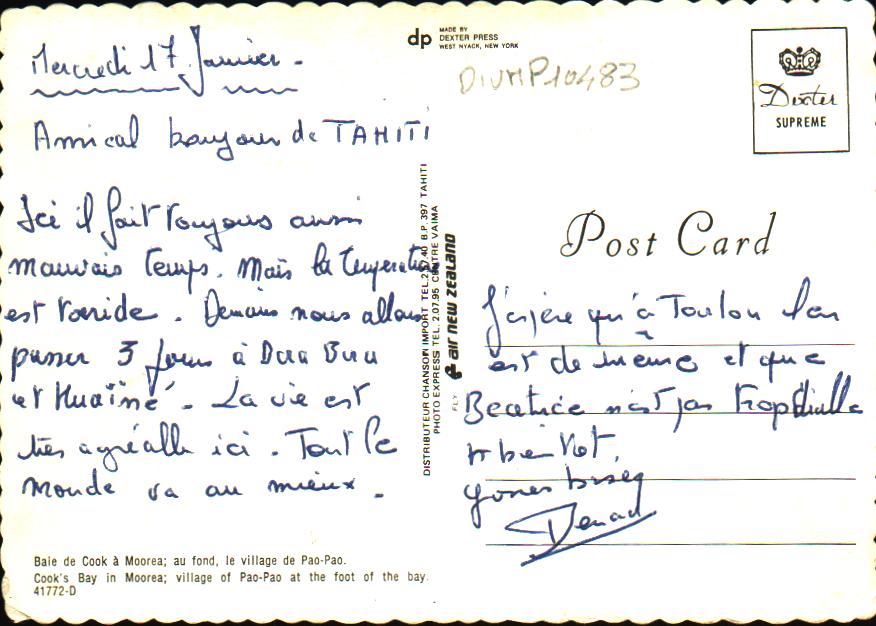 Mercredi 17 Janvier.
Amical bonjour de TAHITI
Ici il fait toujours aussi
mauvais temps. Mais la température
est torride. Demain nous allons
passer 3 jours à Bora Bora
et Huaïné. La vie est
très agréable ici. Tout le
monde va au mieux.
Baie de Cook à Moorea; au fond, le village de Pao-Pao.
Cook's Bay in Moorea; village of Pao-Pao at the foot of the bay.
41772-D
dp MADE BY
DEXTER PRESS
WEST NYACK, NEW YORK
DIVMP10483
DISTRIBUTEUR CHANSON IMPORT TEL. 2.07.40 B.P. 397 TAHITI
PHOTO EXPRESS TEL. 2.07.95 CENTRE VAIMA
FLY air new zealand
Dexter
SUPREME
Post Card
J'espère qu'à Toulon l'on
est de même et que
Béatrice n'est pas trop
A bientôt.
Grosses bises